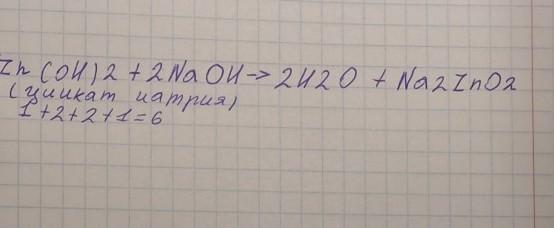 Zn(OH)2+2NaOH->2H2O + Na2ZnO2
(цинкат натрия)
1+2+2+1=6